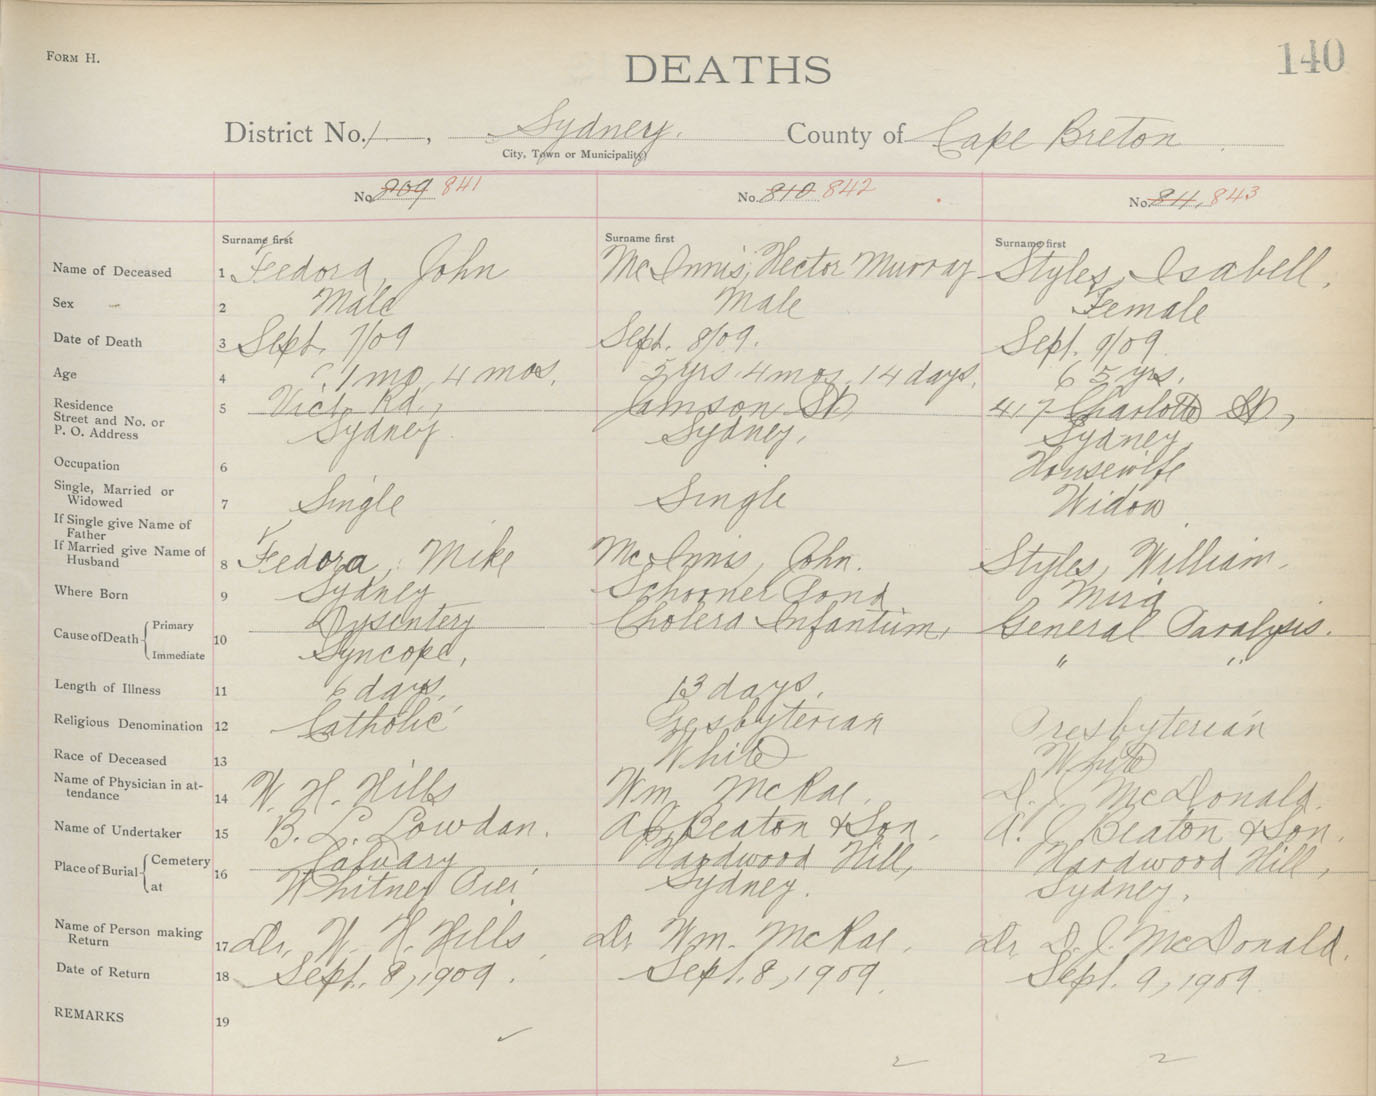 FORM H.
DEATHS
140
District No. 1, Sydney. County of Cape Breton.
City, Town or Municipality)
No. 809 841 No. 810 842 No. 811, 843
Surname first Surname first Surname first
Name of Deceased 1 Fedora, John McInnis, Hector Murray Styles, Isabell.
Sex 2 Male Male Female
Date of Death 3 Sept. 7/09 Sept. 8/09. Sept. 9/09.
Age 4 1 mo, 4 mos. 2 yrs. 4 mos. 14 days. 65 yrs.
Residence 5 Vict. Rd., St, 417 Charlotte St,
Street and No. or
P. O. Address Sydney Sydney, Sydney,
Occupation 6 Housewife
Single, Married or
Widowed 7 Single Single Widow.
If Single give Name of
Father
If Married give Name of
Husband 8 Fedora, Mike McInnis, John. Styles, William.
Where Born 9 Sydney Schooner Pond Mira
Cause of Death { Primary 10 Dysentery Cholera Infantum, General Paralysis.
Immediate Syncope, " "
Length of Illness 11 6 days. 13 days.
Religious Denomination 12 Catholic Presbyterian Presbyterian
Race of Deceased 13 White White
Name of Physician in at-
tendance 14 W. H. Hills Wm. McRae. D. J. McDonald.
Name of Undertaker 15 B. L. Lowdan. A J Beaton & Son. A. J. Beaton & Son.
Place of Burial { Cemetery 16 Calvary, Hardwood Hill, Hardwood Hill,
at Whitney Pier. Sydney. Sydney.
Name of Person making
Return 17 Dr. W. H. Hills, Dr. Wm. McRae. Dr. D. J. McDonald.
Date of Return 18 Sept. 8, 1909. Sept. 8, 1909. Sept. 9, 1909.
REMARKS 19